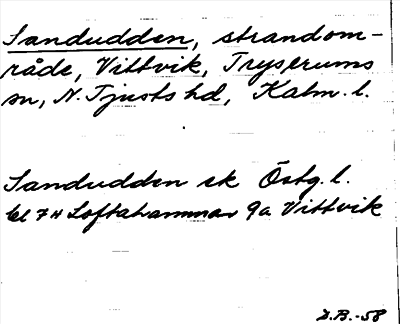 Sandudden, strandom-
råde, Vittvik, Tryserums
sn, N. Tjusts hd, Kalm. l.
Sandudden ek Östg. l.
bl 7H Loftahammar 9a Vittvik
D.B.-58